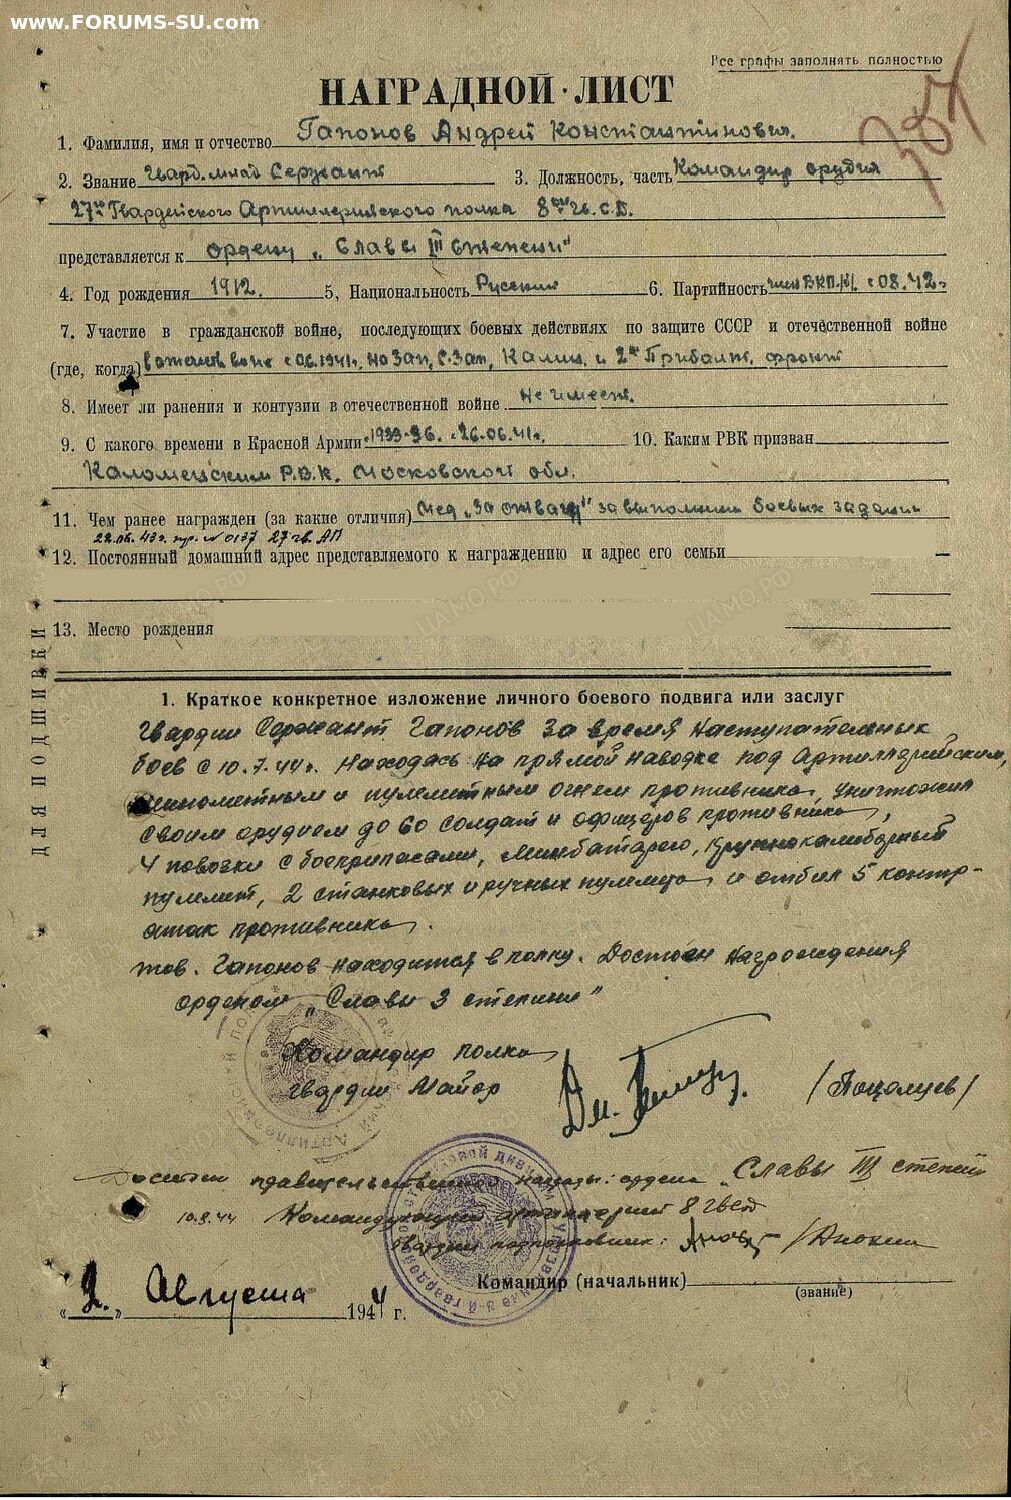 www.FORUMS-SU.com
Все графы заполнять полностью
НАГРАДНОЙ ЛИСТ
1. Фамилия, имя и отчество Гапонов Андрей Константинович.
2. Звание Гвард. млад Сержант 3. Должность, часть Командир орудия
27го Гвардейского Артиллерийского полка 8ой гв. С.Д.
представляется к ордену „Славы III степени"
4. Год рождения 1912. 5, Национальность Русский 6. Партийность член ВКП/б/ с 08.42г
7. Участие в гражданской войне, последующих боевых действиях по защите СССР и отечественной войне
(где, когда) в отечеств войне с 06.1941г. на Зап, С.Зап, Калин. и 2ом Прибалт. фронт
8. Имеет ли ранения и контузии в отечественной войне Не имеет.
9. С какого времени в Красной Армии 1933-36. с 26.06.41г. 10. Каким РВК призван
Каломецским Р.В.К. Московской обл.
11. Чем ранее награжден (за какие отличия) Мед „За отвагу" за выполнении боевых задании
22.06.43г. пр. № 0137 27 гв. АП
12. Постоянный домашний адрес представляемого к награждению и адрес его семьи
13. Место рождения
ДЛЯ ПОДШИВКИ
1. Краткое конкретное изложение личного боевого подвига или заслуг
Гвардии Сержант Гапонов за время наступательных
боев с 10.7.44г. находясь на прямой наводке под Артиллерийским,
минометным и пулеметным огнем противника, уничтожил
своим орудием до 60 солдат и офицеров противника,
4 повозки с боеприпасами, минбатарею, крупнокалиберный
пулемет, 2 станковых и ручных пулемца и отбил 5 контр-
атак противника.
тов. Гапонов находится в полку. Достоен награждения
орденом „Славы 3 степини"
Командир полка
гвардии Майор / /
Достоин правительственной награды: ордена „Славы III степени
10.8.44 Командующий артиллерией 8 гвсд
гвардии подполковник: /Анохин
Командир (начальник)
(звание)
„2." Августа 1944 г.